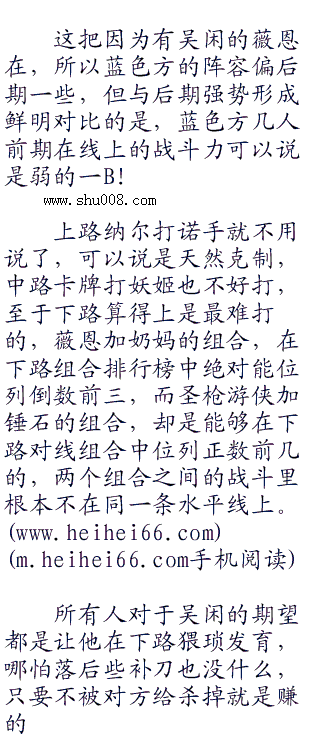 这把因为有吴闲的薇恩
在，所以蓝色方的阵容偏后
期一些，但与后期强势形成
鲜明对比的是，蓝色方几人
前期在线上的战斗力可以说
是弱的一B!
www.shu008.com
上路纳尔打诺手就不用
说了，可以说是天然克制，
中路卡牌打妖姬也不好打，
至于下路算得上是最难打
的，薇恩加奶妈的组合，在
下路组合排行榜中绝对能位
列倒数前三，而圣枪游侠加
锤石的组合，却是能够在下
路对线组合中位列正数前几
的，两个组合之间的战斗里
根本不在同一条水平线上。
(www.heihei66.com)
(m.heihei66.com手机阅读)
所有人对于吴闲的期望
都是让他在下路猥琐发育，
哪怕落后些补刀也没什么，
只要不被对方给杀掉就是赚
的